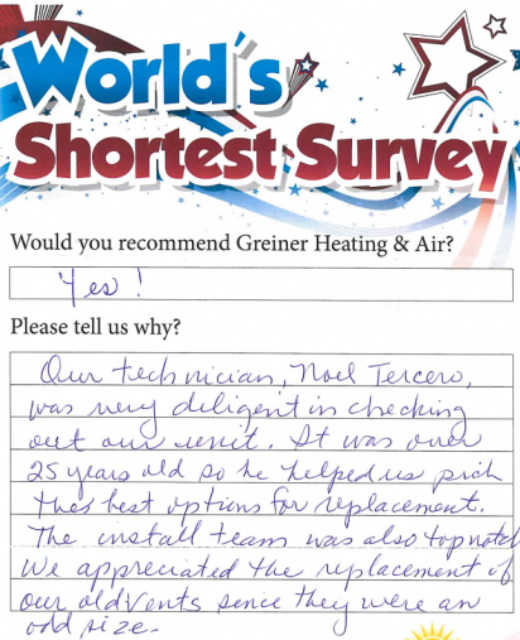 World's
Shortest Survey
Would you recommend Greiner Heating & Air?
Yes!
Please tell us why?
Our technician, Noel Tercero,
was very diligent in checking
out our unit. It was over
25 years old so he helped us pick
the best options for replacement.
The install team was also top notch
We appreciated the replacement of
our old vents since they were an
odd size.